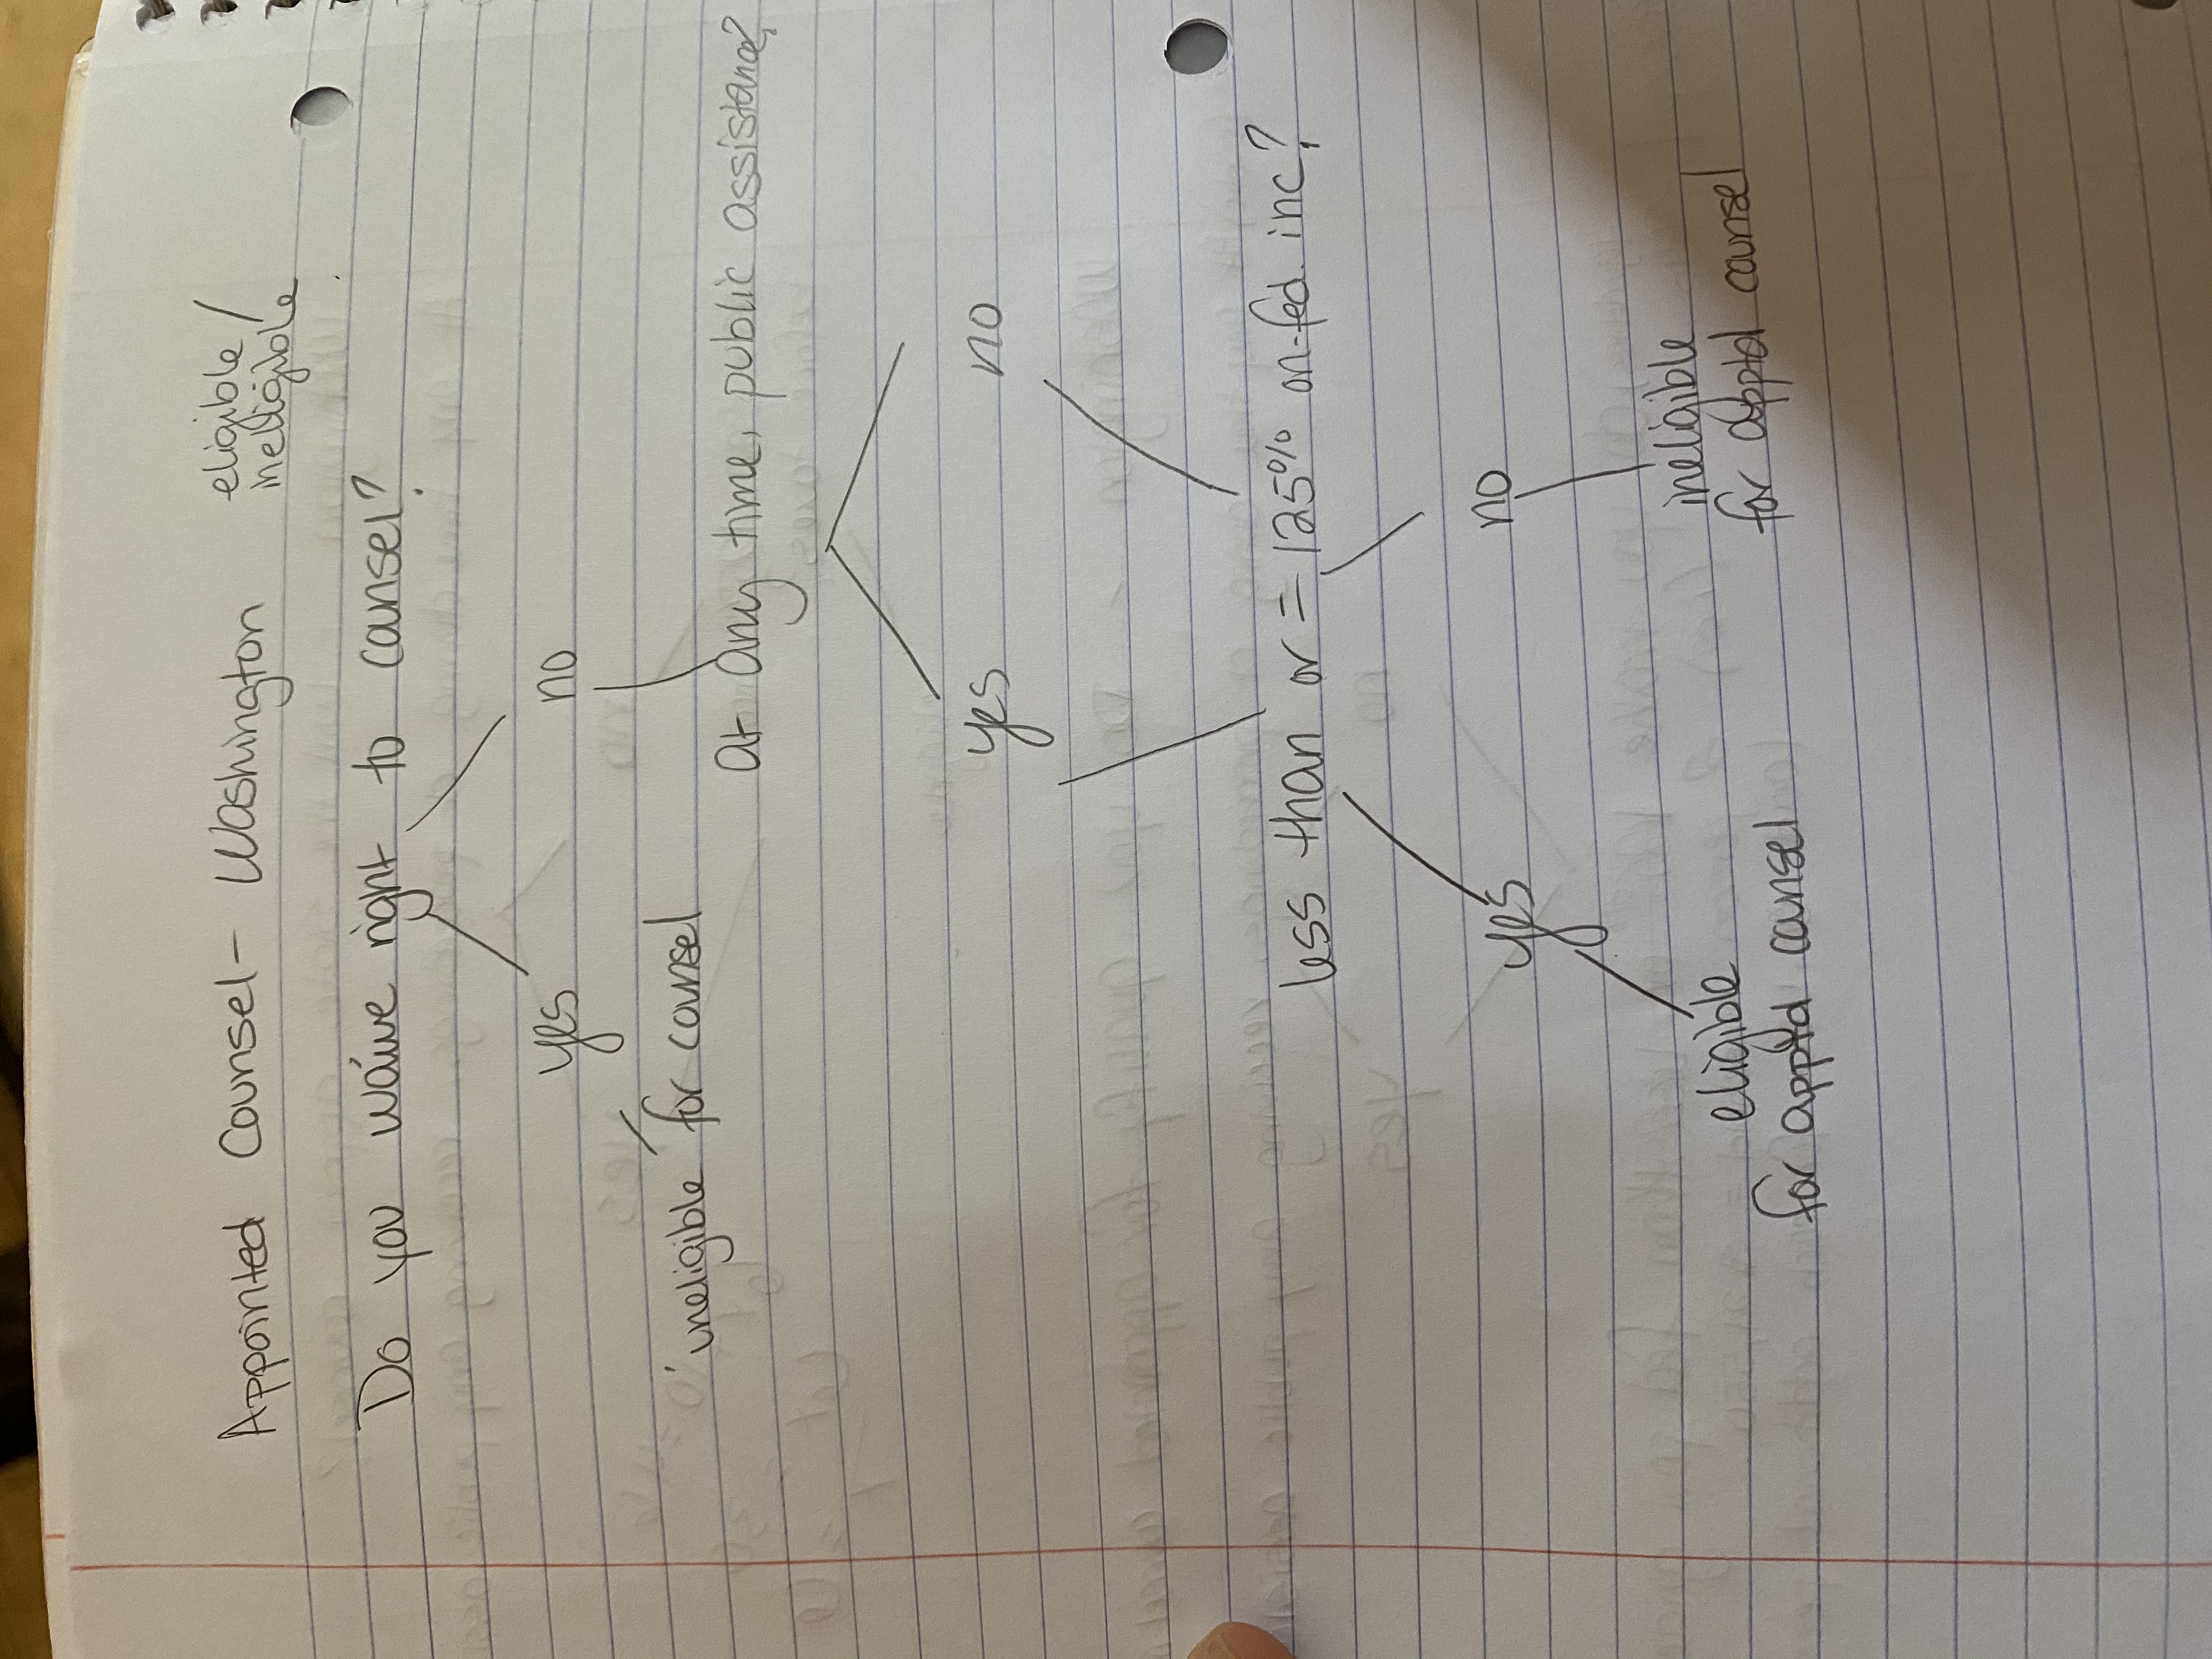 Appointed Counsel - Washington
eligible /
ineligible
Do you waive right to counsel?
yes
no
ineligible for counsel
at any time, public assistance?
yes
no
less than or = 125% on fed. inc?
yes
no
eligible
for apptd counsel
ineligible
for apptd counsel